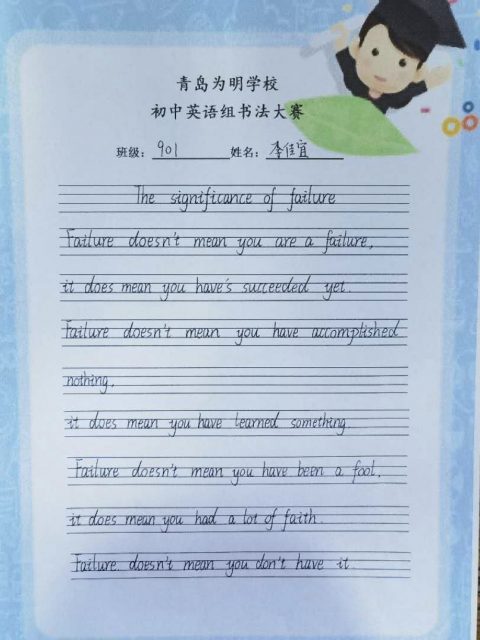 青岛为明学校
初中英语组书法大赛
班级: 901 姓名: 李佳宜
The significance of failure
Failure doesn't mean you are a failure,
it does mean you have's succeeded yet.
Failure doesn't mean you have accomplished
nothing,
it does mean you have learned something.
Failure doesn't mean you have been a fool,
it does mean you had a lot of faith.
Failure doesn't mean you don't have it.